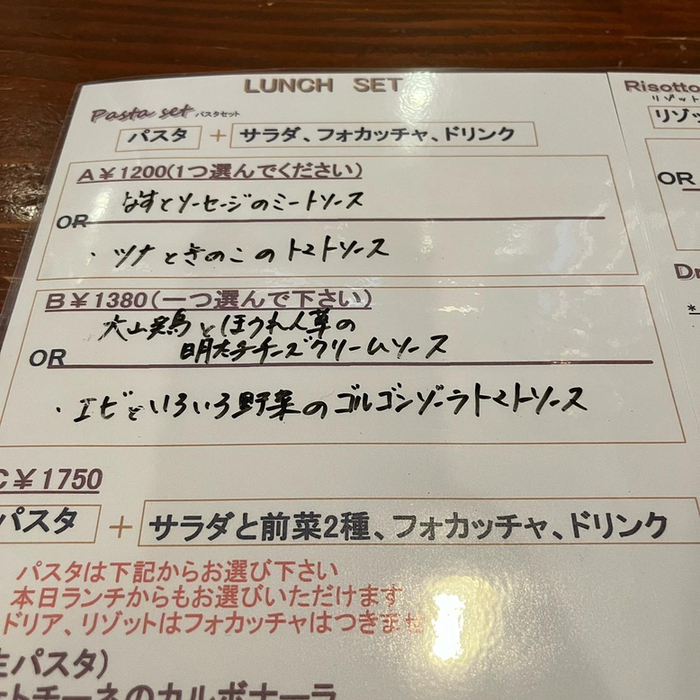 LUNCH SET
Pasta set パスタセット
パスタ + サラダ、フォカッチャ、ドリンク
A¥1200(1つ選んでください)
なすとソーセージのミートソース
OR
・ツナときのこのトマトソース
B¥1380(一つ選んで下さい)
大山鶏とほうれん草の
明太子チーズクリームソース
OR
・エビといろいろ野菜のゴルゴンゾーラトマトソース
C¥1750
パスタ + サラダと前菜2種、フォカッチャ、ドリンク
パスタは下記からお選び下さい
本日ランチからもお選びいただけます
ドリア、リゾットはフォカッチャはつきませ
生パスタ)
トチーネのカルボナーラ
Risotto
リゾット
リゾッ
OR
Dr
*